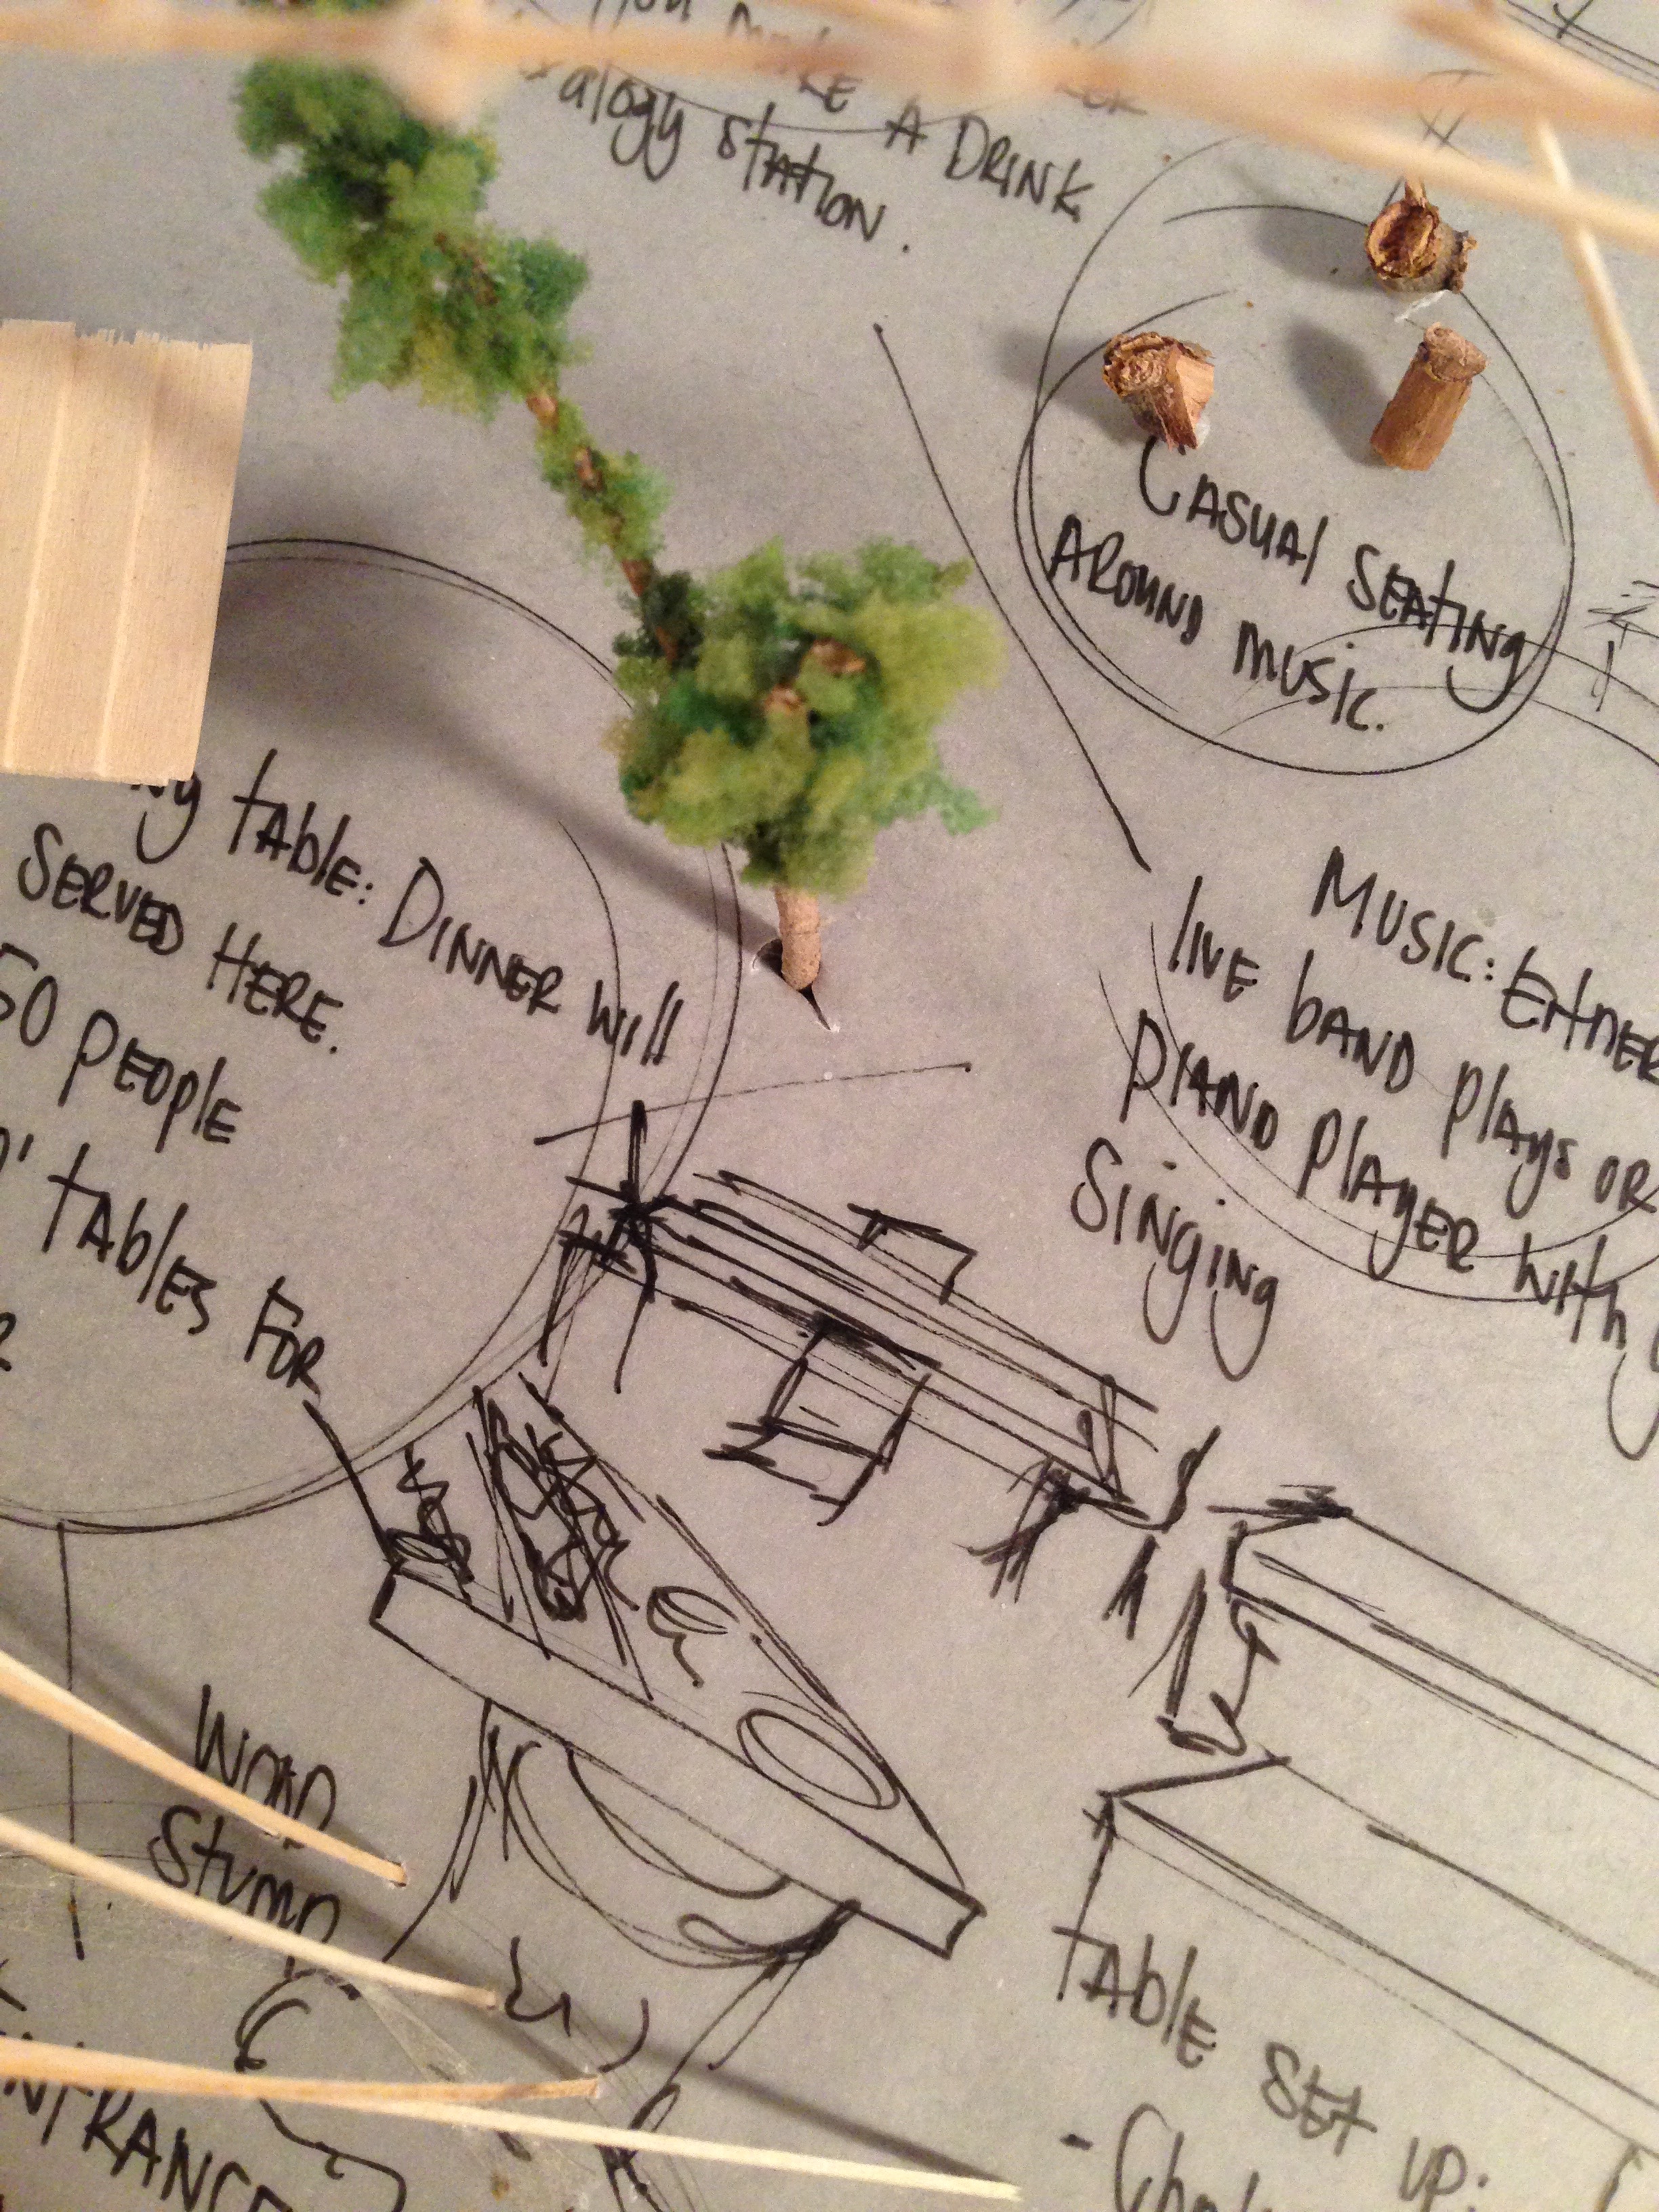 A DRINK
station.
CASUAL SEATING
AROUND MUSIC.
table: DINNER will
SERVED HERE.
50 people
tables FOR
MUSIC: EITHER
live band plays or
piano player with
Singing
WOOD
Stump
ENTRANCE
table set up: